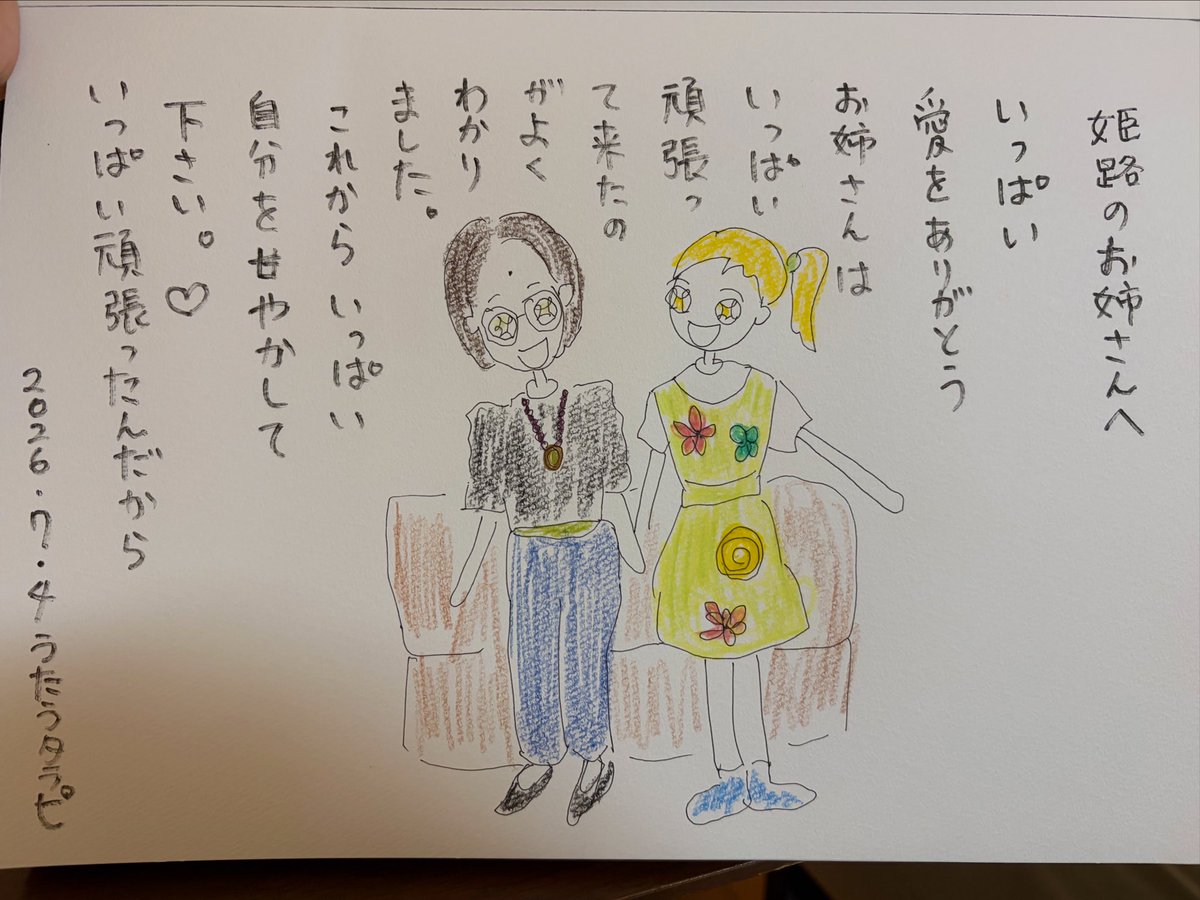 姫路のお姉さんへ
いっぱい
愛をありがとう
お姉さんは
いっぱい
頑張っ
て来たの
がよく
わかり
ました。
これから いっぱい
自分を甘やかして
下さい。♡
いっぱい頑張ったんだから
2026.7.4うたうタラピ